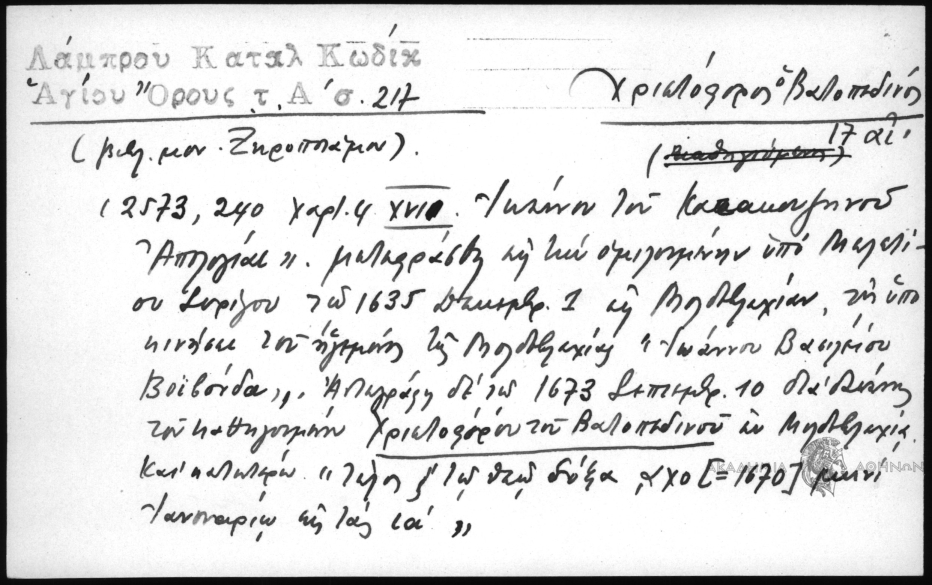 Λάμπρου Καταλ Κωδίκ
Ἁγίου Ὄρους τ. Α΄ σ. 217
Χριστόφορος ὁ Βατοπεδινός
17 αἰ.
(βιβλ. μον. Ξηροποτάμου).
(2573, 240 χαρτ. 4 XVII. Ἰωάννου τοῦ Κατακουζηνοῦ
Ἀπολογίαι". μεταφράσθη εἰς τὴν ὁμιλουμένην ὑπὸ Μελετί-
ου Συρίγου τῷ 1635 Δεκεμβρ. 1 εἰς Μολδβλαχίαν, τῇ ὑπο
κινήσει τοῦ ἡγεμόνος τῆς Μολδβλαχίας "Ἰωάννου Βασιλείου
Βοϊβόνδα„. Ἀντεγράφη δὲ τῷ 1673 Σεπτεμβρ. 10 διὰ
τοῦ καθηγουμένου Χριστοφόρου τοῦ Βατοπεδινοῦ ἐν Μολδβλαχίᾳ.
Καὶ κατωτέρω "Τέλος καὶ τῷ θεῷ δόξα ͵αχο [=1670] μηνὶ
Ἰανουαρίῳ εἰς τὰς ια΄ „
ΑΚΑΔΗΜΙΑ ΑΘΗΝΩΝ